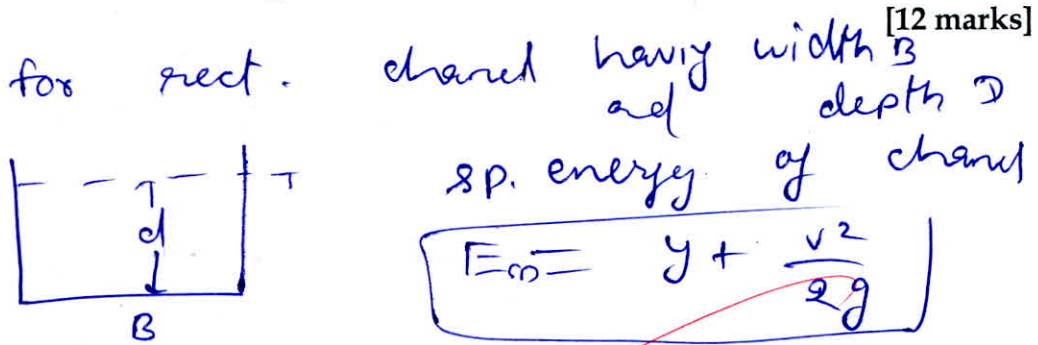 [12 marks]
for rect. chanel havig width B
and depth D
sp. energy of chanel
E = y + v²/2g
d
B